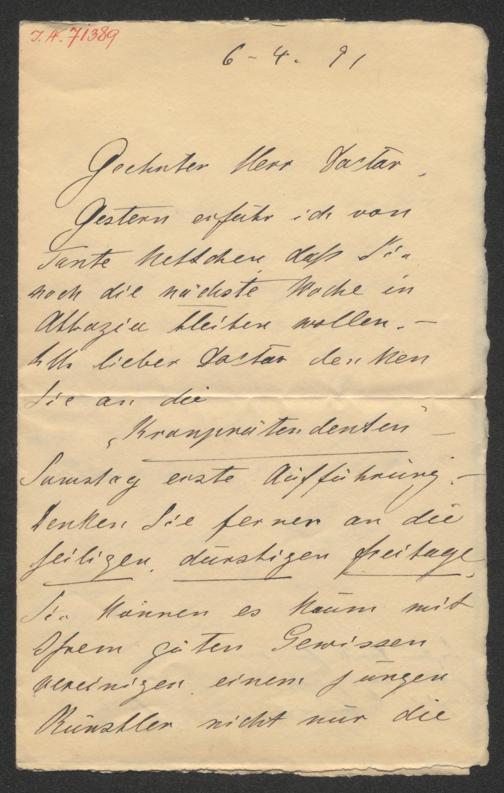 I.N. 71389
6 - 4. 91
Geehrter Herr Doctor,
Gestern erfuhr ich von
Tante Nettchen daß Sie
noch die nächste Woche in
Abbazia bleiben wollen. –
lieber Doctor denken
Sie an die
„Kronprätendenten" –
Samstag erste Aufführung. –
Denken Sie ferner an die
heiligen, durstigen Freitage.
Sie können es kaum mit
Ihrem guten Gewissen
vereinigen einem jungen
Künstler nicht nur die